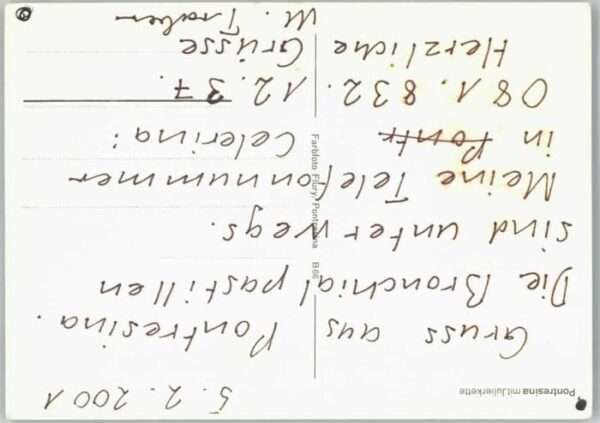 5.2.2001
Pontresina mit Julierkette
Gruss aus Pontresina.
Die Bronchialpastillen
sind unterwegs.
Meine Telefonnummer
in Pontr Celerina:
081. 832. 12.37.
Herzliche Grüsse
M. Traber
Farbfoto Flury, Pontresina B66